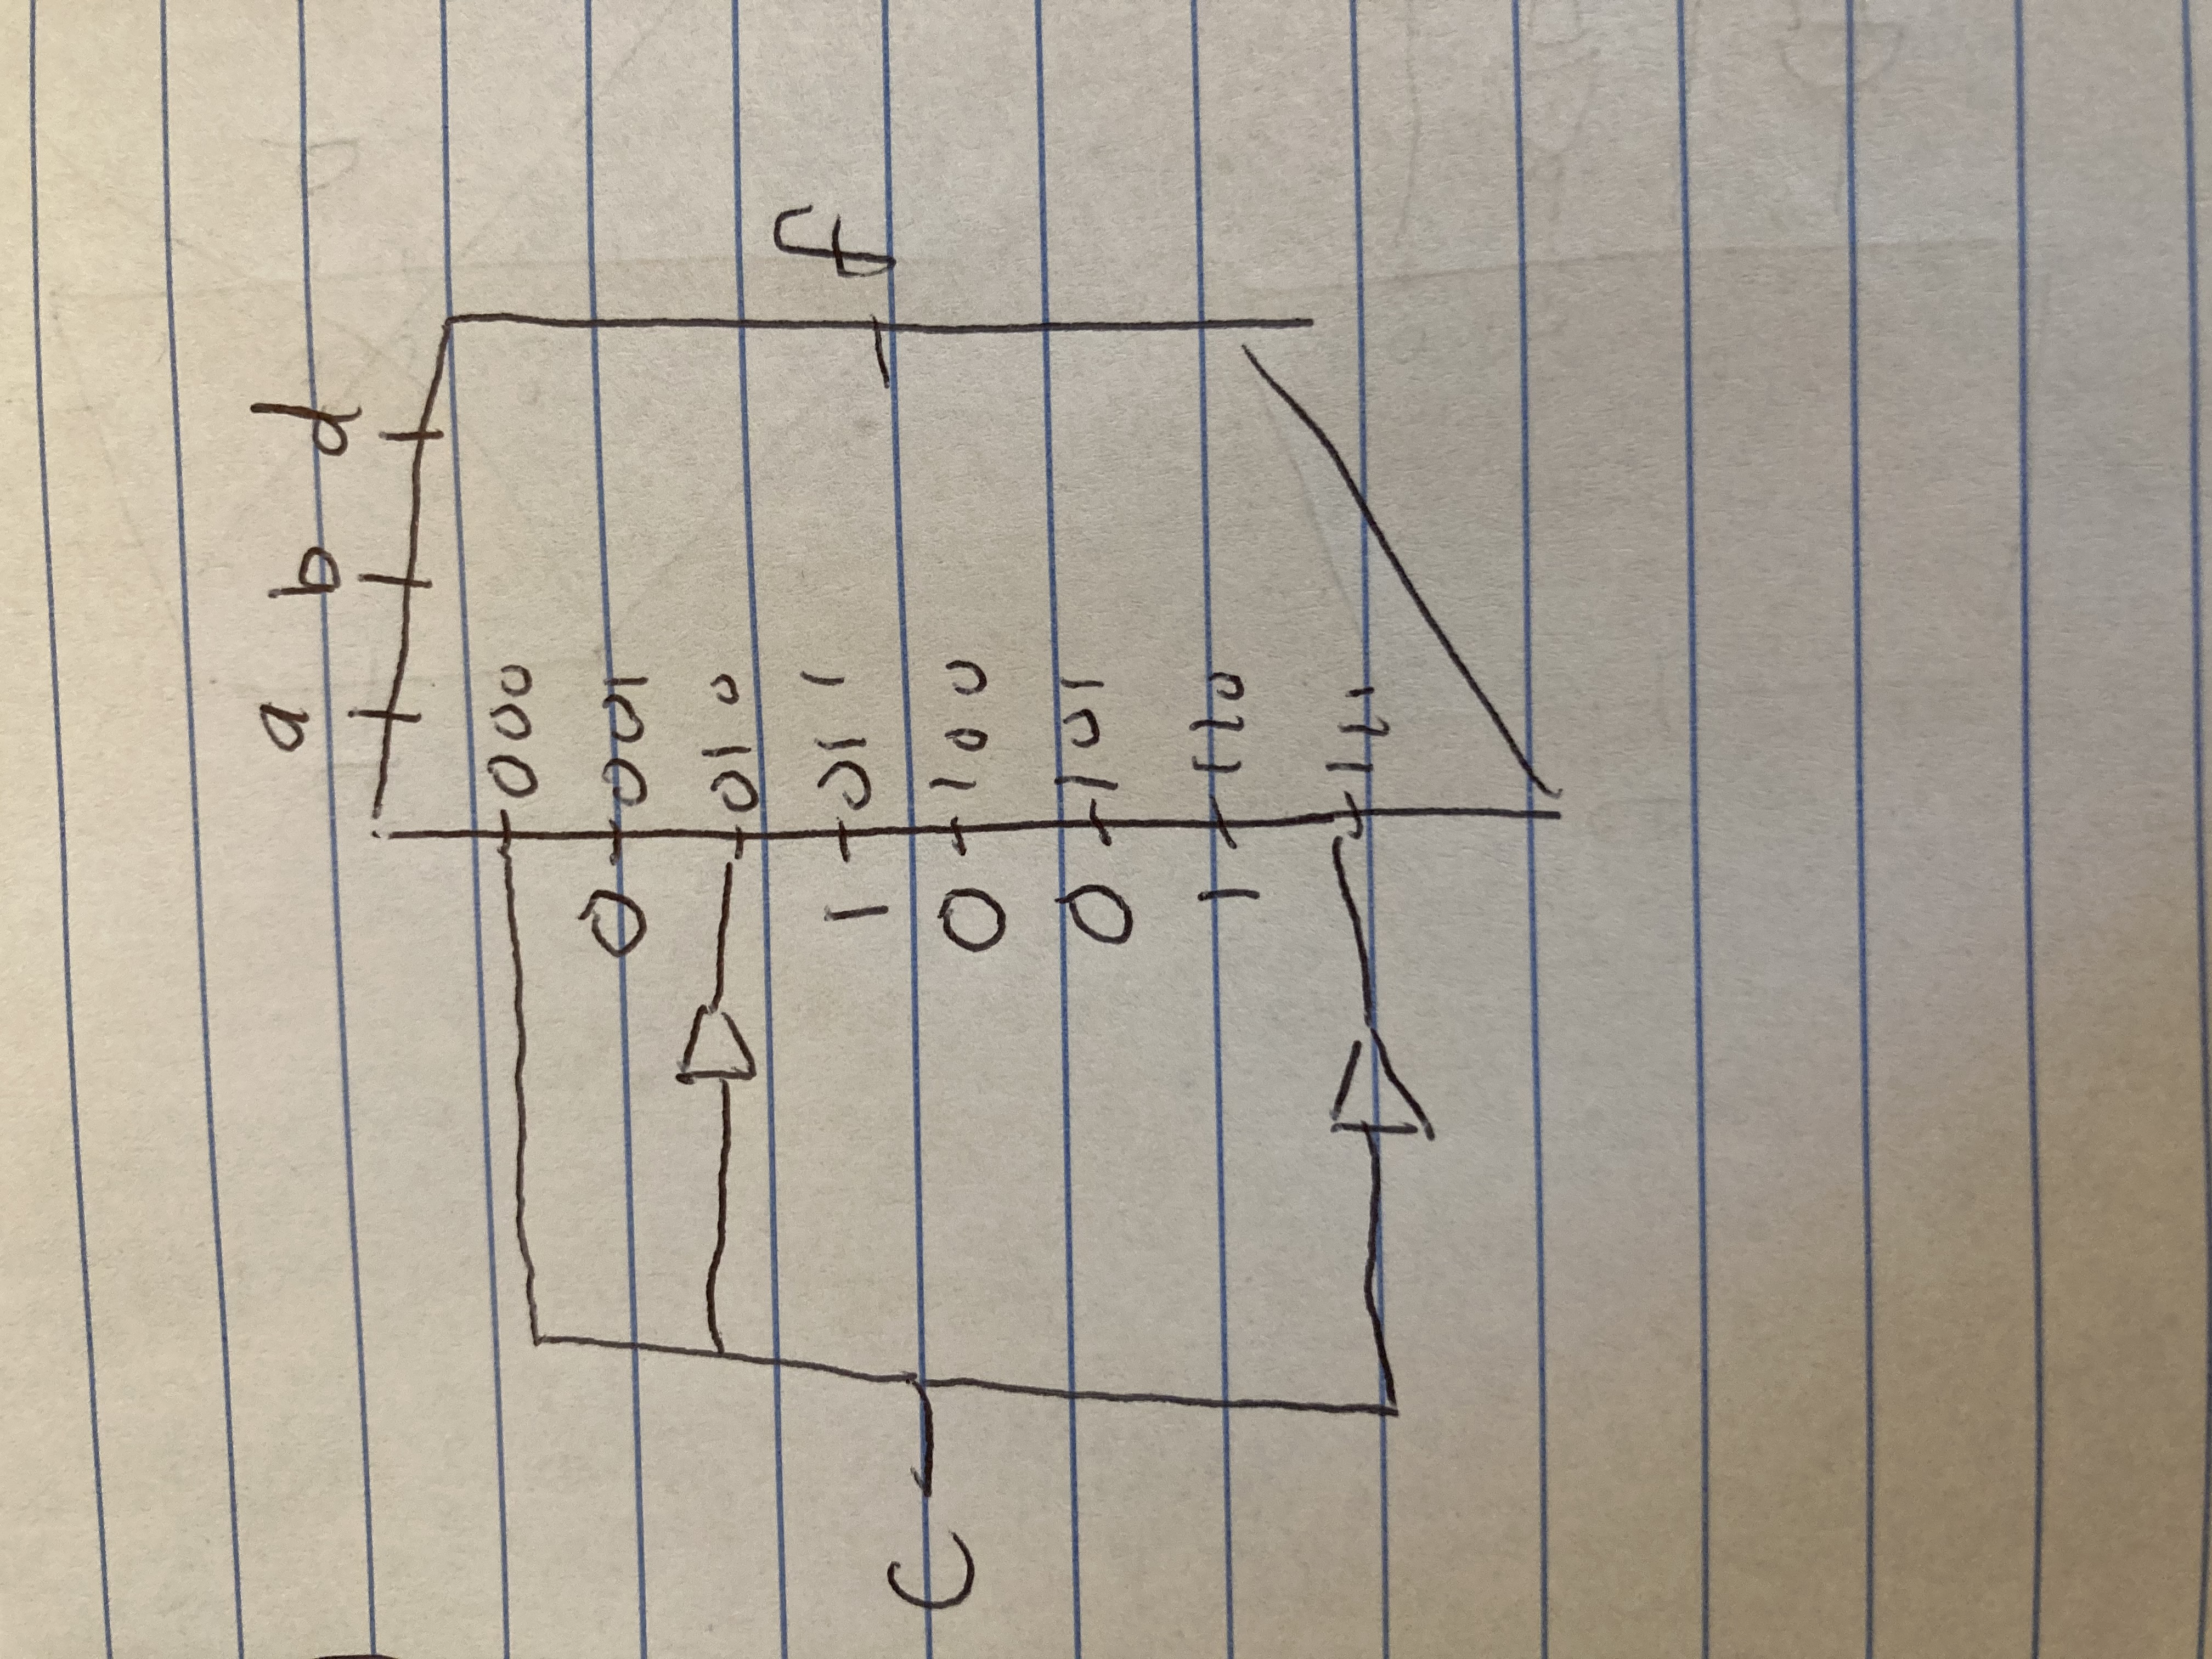 a b d
000
0 001
010
1 011
f
C
0 100
0 101
1 110
111